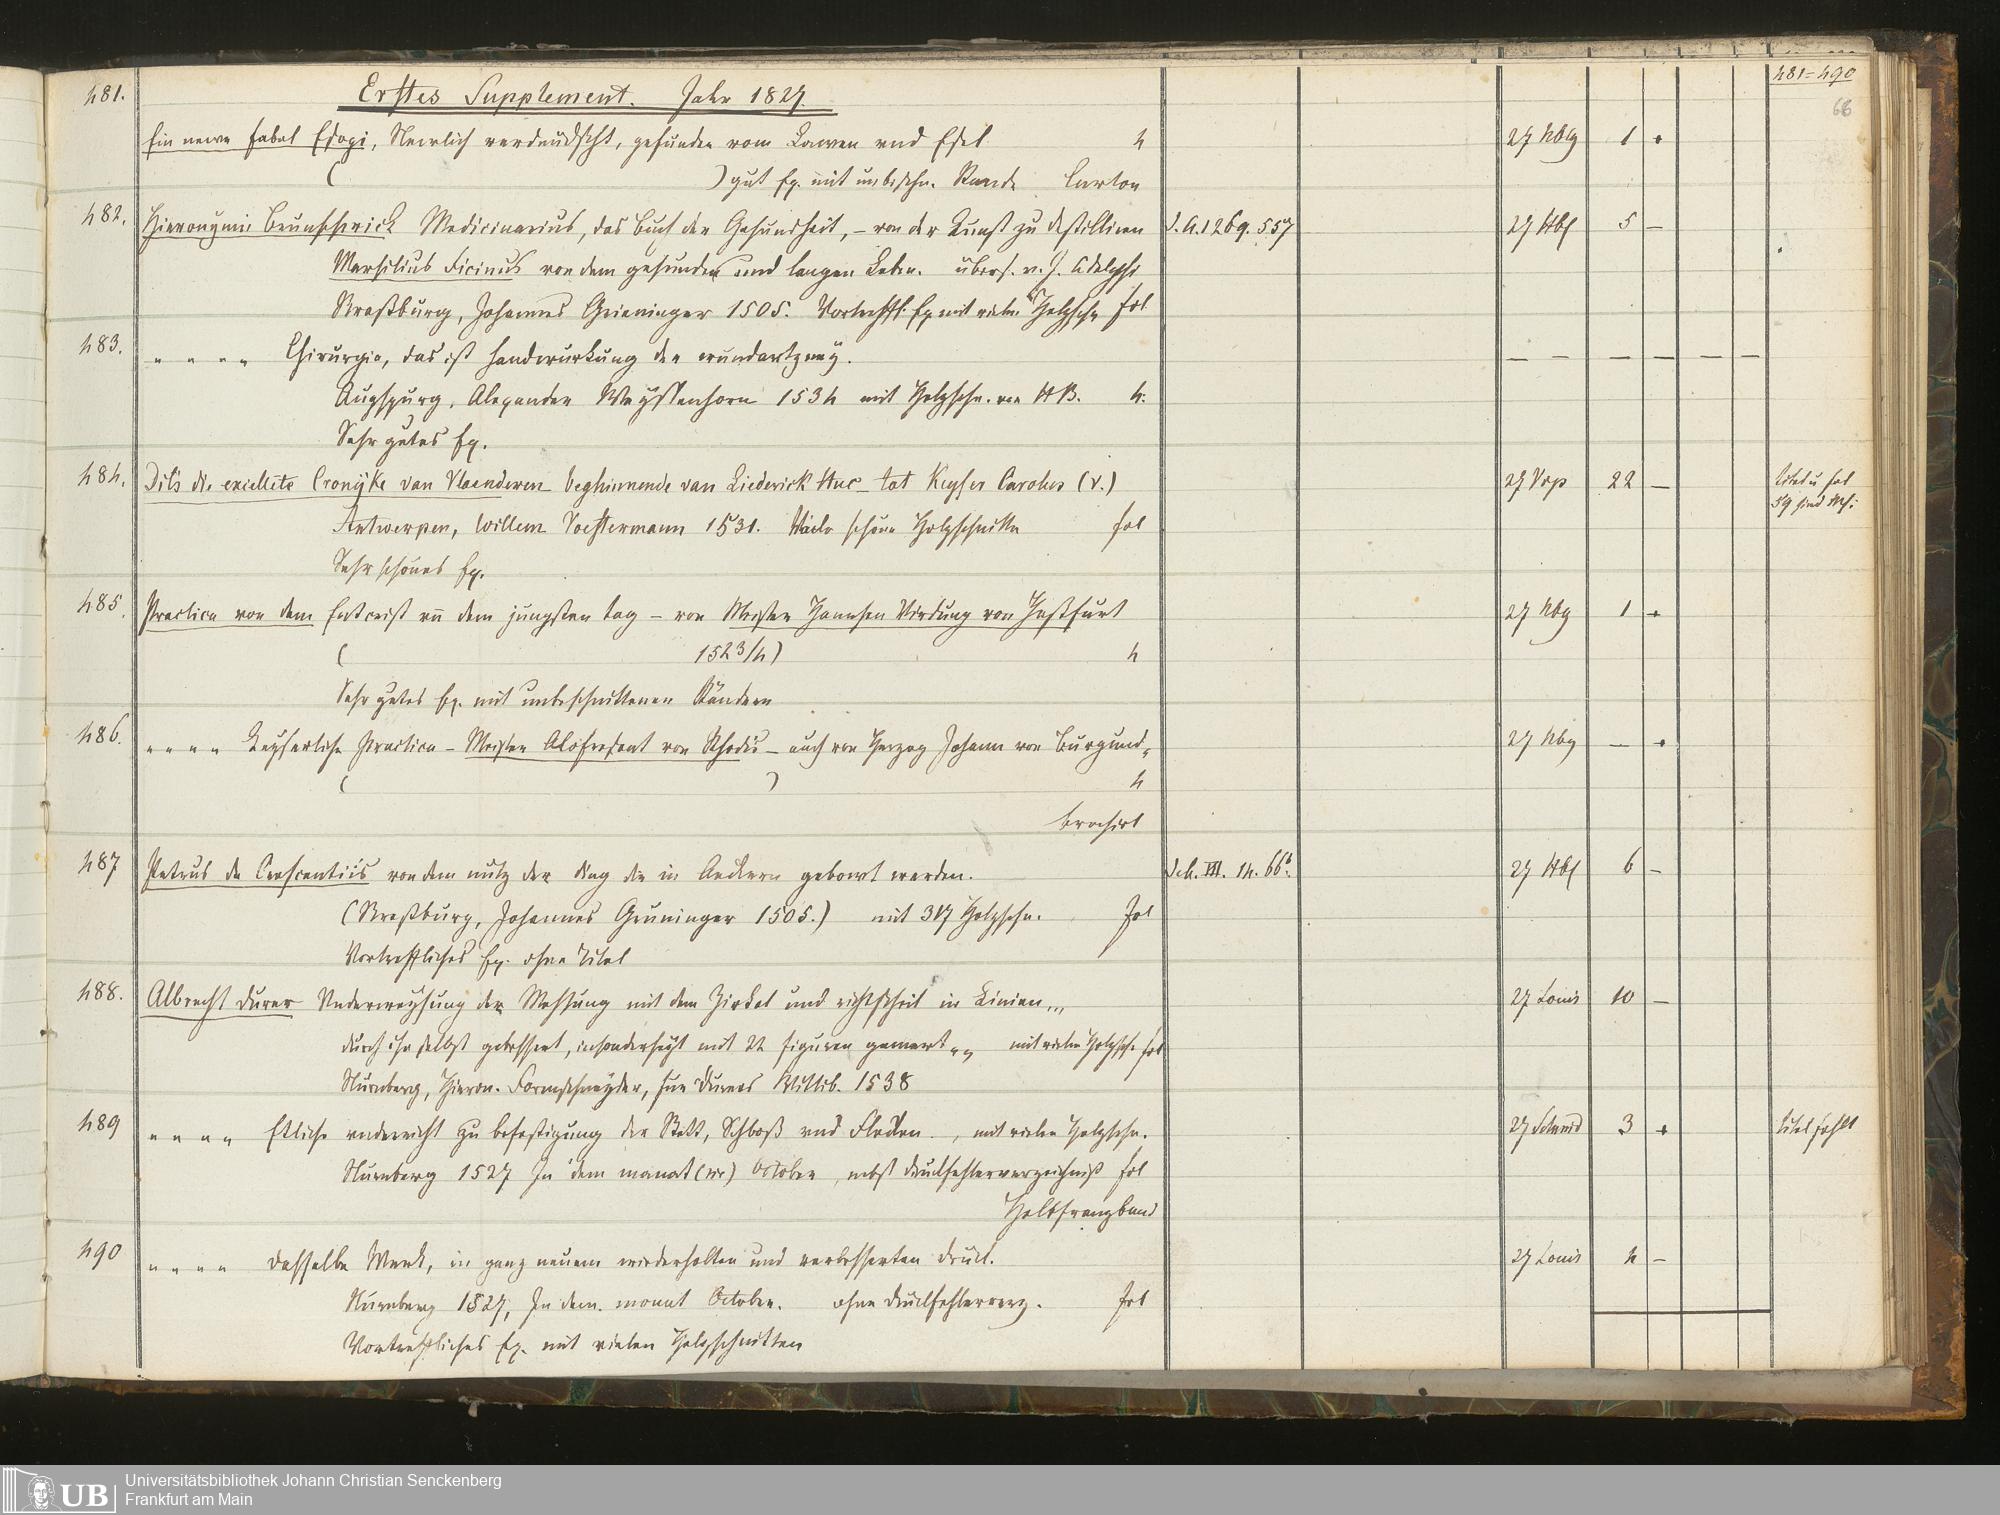 481=490
66
Erstes Supplement. Jahr 1827.
481. Ein newe Fabel Esopi, Newlich verdeudscht, gefunden vom Lawen und Esel 4 27 Nbg 1 +
( ) gut Ex. mit unbeschn. Rande Carton
482. Hieronymi Brunschwick Medicinarius, das Buch der Gesundheit, – von der Kunst zu destilliren 27 Hbf 5 –
Marsilius Ficinus von dem gesunden und langen Leben. übers. v. J. Adelphi
Straßburg, Johannes Grieninger 1505. Vortreffl. Ex mit vielen Holzschn fol
483. " " " " Chirurgia, das ist handwurkung der wundartzney. — — — — — —
Augspurg, Alexander Weyssenhorn 1534 mit Holzschn. von HB. 4.
Sehr gutes Ex.
484. Dits die excellēte Cronijke van Vlaenderen beghinnende van Liederick Buc tot Keyser Carolus (V.) 27 22 –
Antwerpen, Willem Vorstermann 1531. Viele schöne Holzschnitte fol
Sehr schönes Ex.
485. Practica von dem Entcrist uñ dem jungsten tag – von Meister Hannsen Virdung von Hasfurt 27 Nbg 1 +
( 1523/4) 4
Sehr gutes Ex. mit unbeschnittenen Rändern
486. " " " " Keyserliche Practica – Meister Alofresant von Rhodis – auch von Herzog Johann von Burgund 27 Nbg — +
( ) 4
brochirt
487 Petrus de Crescentiis von dem nutz der ding die in Aeckern gebowt werden. 27 Hbf 6 –
(Straßburg, Johannes Gruninger 1505.) mit 317 Holzschn. fol
Vortreffliches Ex. ohne Titel
488. Albrecht Durer Underweysung der Messung mit dem Zirkel und richtscheit in Linien 27 Louis 10 –
durch ihn selbst gebessert, insonderheyt mit 22 figuren gemert " " mit vielen Holzsch fol
Nurnberg, Hieron. Formschneyder, fur Durers Wittib. 1538
489 " " " " Etliche underricht zu befestigung der Stett, Schloß und Flecken., mit vielen Holzschn. 27 Schmid 3 + Titel fehlt
Nurnberg 1527 In dem monat (sic) October, nebst Druckfehlerverzeichniß fol
Halbfranzband
490 " " " " dasselbe Werk, in ganz neuem wiederholten und verbesserten Druck. 27 Louis 4 –
Nurnberg 1527, In dem. monat October. ohne Druckfehlerverz. fol
Vortreffliches Ex. mit vielen Holzschnitten
UB
Universitätsbibliothek Johann Christian Senckenberg
Frankfurt am Main